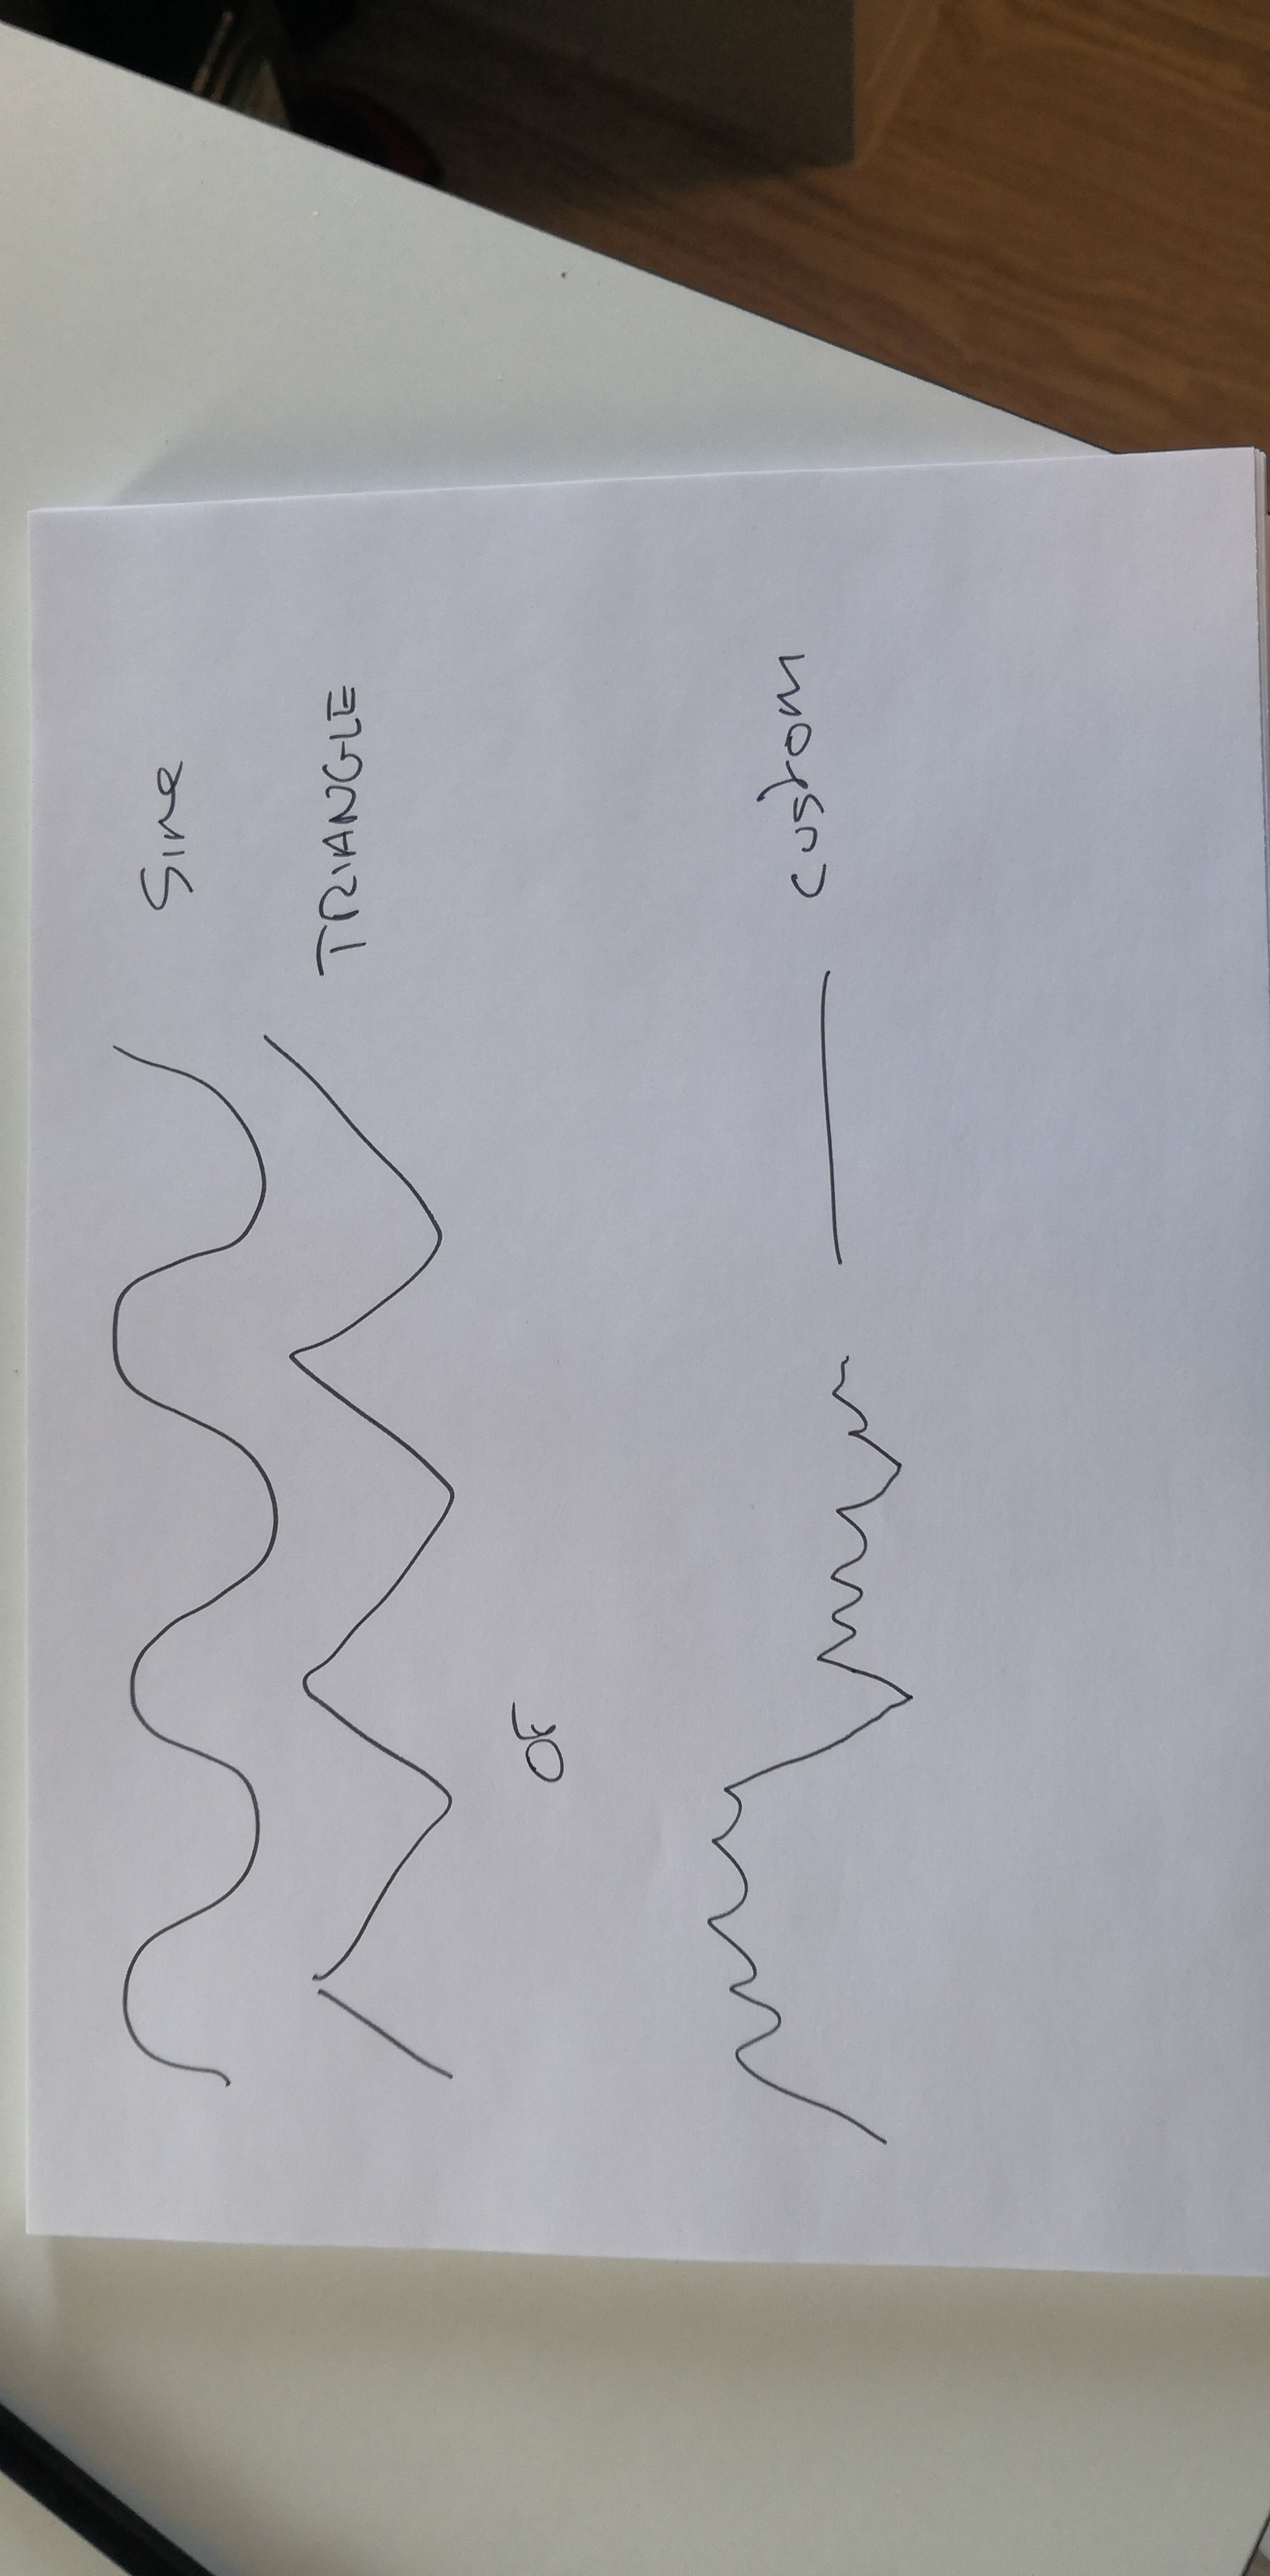 Sine
TRIANGLE
or
custom